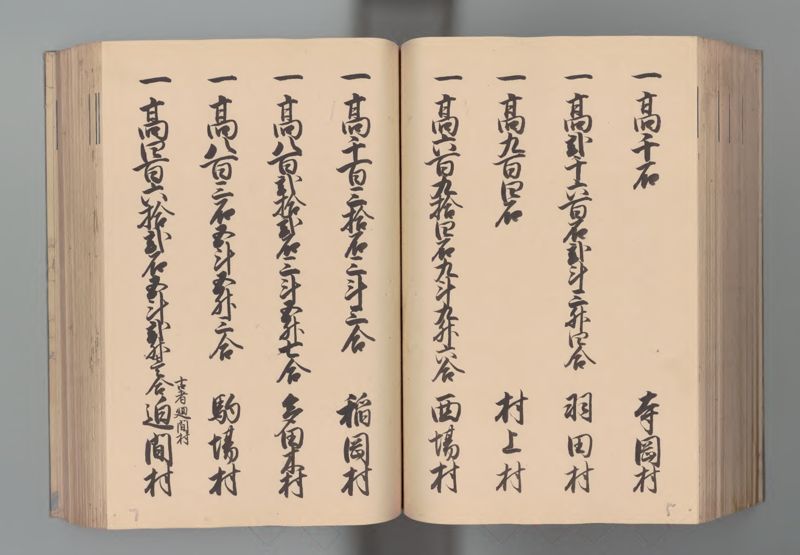 一高千石 寺岡村
一高弐千六百石弐斗三升四合 羽田村
一高九百四石 村上村
一高六百九拾四石九斗九升六合 西場村
一高千百三拾石三斗三合 稲岡村
一高八百弐拾弐石三斗五升七合 多田木村
一高八百三石五斗五升三合 駒場村
一高四百六拾弐石五斗弐升三合 迫間村
古者廻間村
7
5